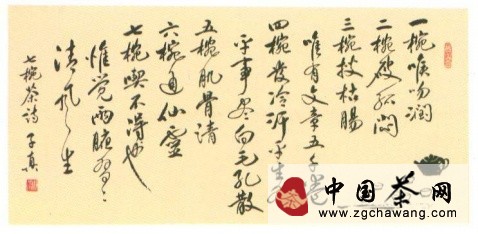 一椀喉吻潤
二椀破孤悶
三椀搜枯腸
唯有文章五千卷
四椀发冷汗平生
平事盡向毛孔散
五椀肌骨清
六椀通仙靈
七椀喫不得也
惟覺兩腋習々
清风生
七椀茶詩 子真
中国茶网
www.zgchawang.com